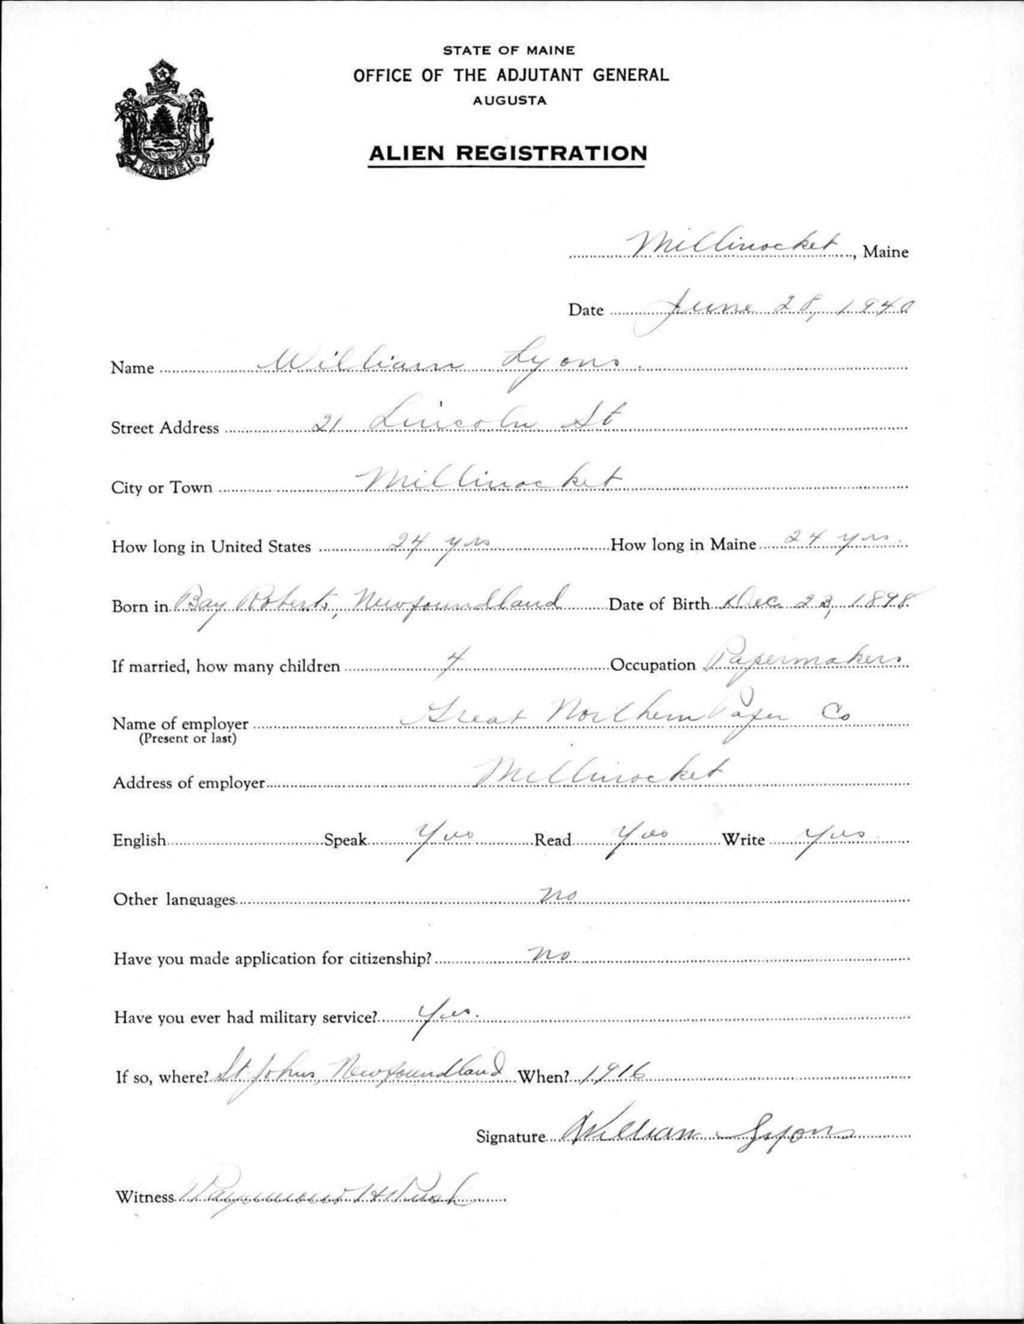 STATE OF MAINE
OFFICE OF THE ADJUTANT GENERAL
AUGUSTA
ALIEN REGISTRATION
MAINE
Millinocket, Maine
Date June 28, 1940
Name William Lyons.
Street Address 21 Lincoln St
City or Town Millinocket
How long in United States 24 yrs How long in Maine 24 yrs.
Born in Bay Roberts, Newfoundland Date of Birth Dec. 23, 1898
If married, how many children 4 Occupation Papermakers
Name of employer Great Northern Paper Co
(Present or last)
Address of employer Millinocket
English Speak Yes Read Yes Write Yes
Other languages no
Have you made application for citizenship? no
Have you ever had military service? Yes.
If so, where? St Johns, Newfoundland When? 1916
Signature William Lyons
Witness Raymond H Rush